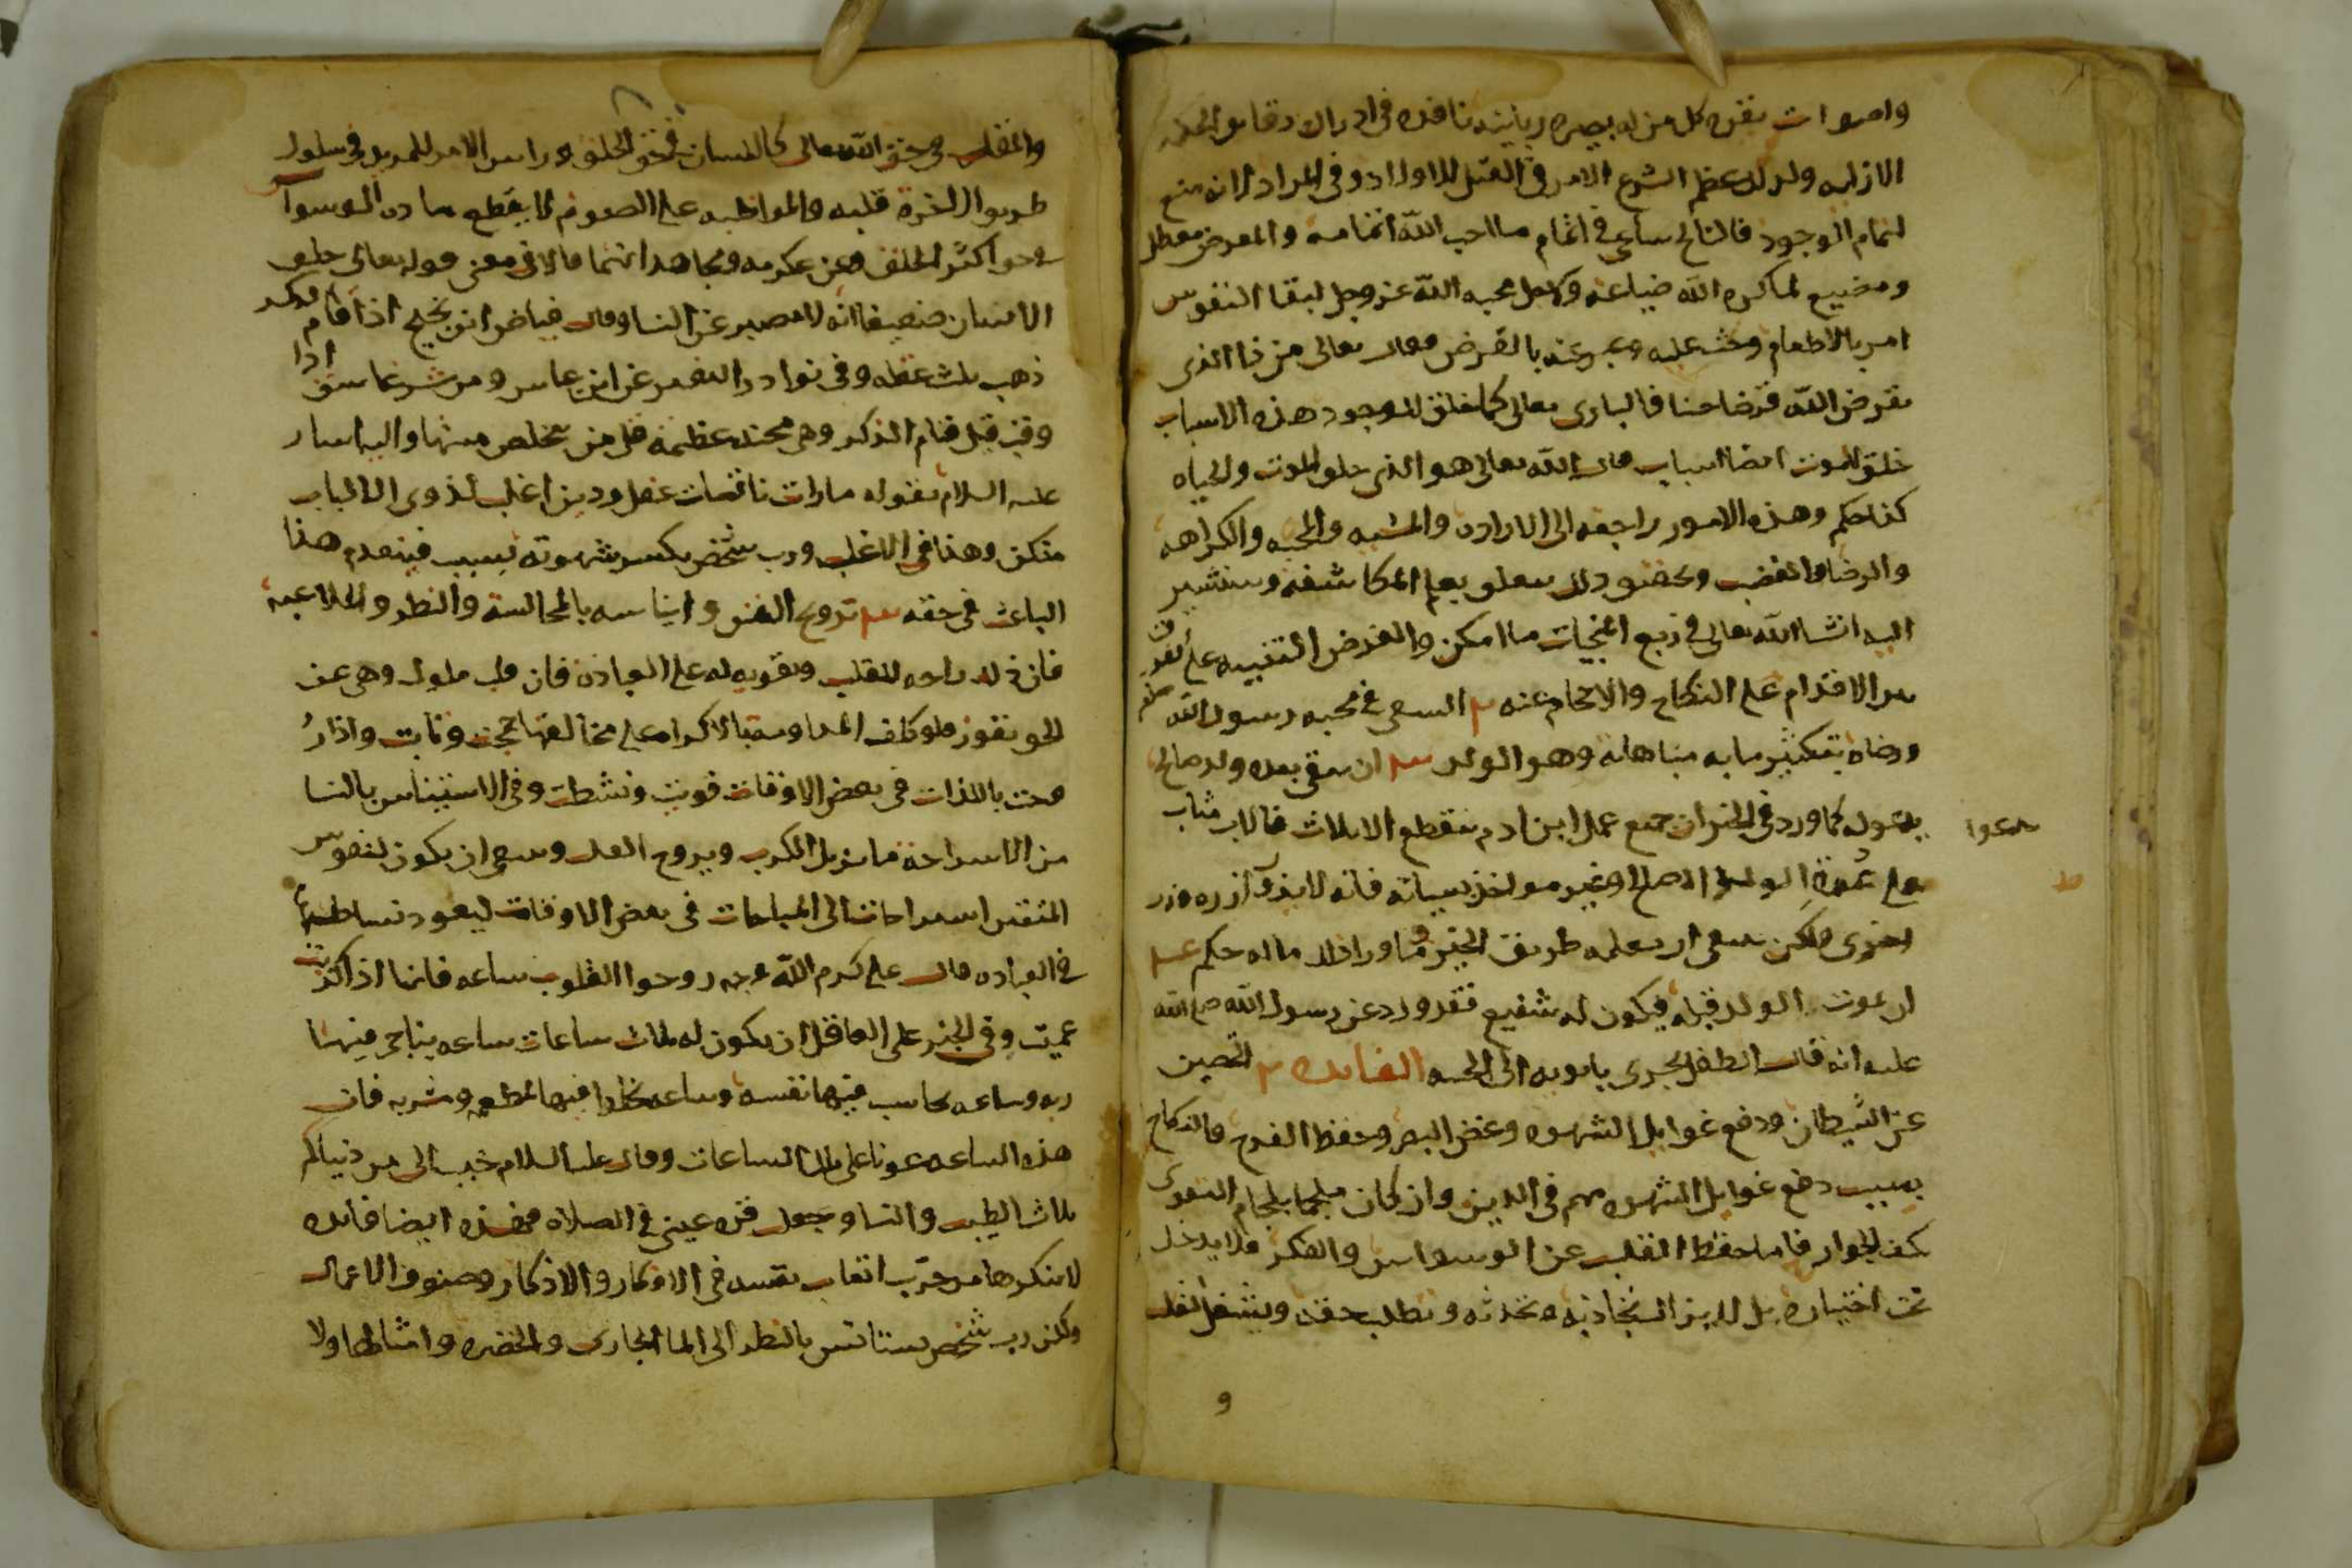 واصوات يقره كل من له بصيرة ربانية نافذه في ادراك دقايق الحكمه
الازليه ولذلك عظم الشرع الامر في القتل للاولاد وفي الواد لانه منع
لتمام الوجود فالناكح ساعي في اتمام ما احب الله اتمامه والمعرض معطل
ومضيع لما كره الله ضياعه ولاجل محبه الله عز وجل لبقا النفوس
امر بالاطعام وحث عليه وعبر عنه بالقرض فقال تعالى من ذا الذى
يقرض الله قرضا حسنا فالبارى تعالى كما خلق للوجود هذه الاسباب
خلق للموت ايضا اسباب قال الله تعالى هو الذى خلق الموت والحياه
كذا حكم وهذه الامور راجعه الى الاراده والمشيه والمحبه والكراهه
والرضا والغضب وتحقيق ذلك يتعلق بعلم المكاشفه وسنشير
اليه انشا الله تعالى في ربع المنجيات ما امكن والغرض التنبيه على
الاقدام على النكاح والاحجام عنه ٢ السعى في محبه رسول الله صلعم
ورضاه بتكثير ما به مباهاته وهو الولد ٣ ان يبقى بعده ولد صالح
يدعوا له كما ورد في الخبر ان جميع عمل ابن ادم ينقطع الا ثلاث فالاب مثاب
على الولد الصالح وغير مواخذ بسيئاته فانه لا تزر وازرة وزر
اخرى ولكن ينبغى ان يعلمه طريق الخير وما ورا ذلك ماله حكم ٤
ان يموت الولد قبله فيكون له شفيع فقد ورد عن رسول الله صلى الله
عليه انه قال الطفل يجرى بابويه الى الجنه الفايده ٢ التحصين
عن الشيطان ودفع غوايل الشهوه وغض البصر وحفظ الفرج فالنكاح
بسبب دفع غوايل الشهوه مهم في الدين وان كان ملجما بلجام التقوى
كف الجوارح فاما حفظ القلب عن الوسواس والفكر فلا يدخل
تحت اختياره بل لا يزال تجاذبه تحدثه وتطلب حقه ويشغل القلب
و
يدعوا
والقلب في حق الله تعالى كاللسان في حق الخلق وراس الامر للمريد في سلوك
طريق الاخرة قلبه والمواظبه على الصوم لا يقطع ماده الوسواس
في حق اكثر الخلق وعن عكرمه ومجاهد انهما قالا في معنى قوله تعالى خلق
الانسان ضعيفا انه لا يصبر عن النسا وقال فياض ابن نجيح اذا قام ذكر
ذهب ثلث عقله وفي نوادر التفسير عن ابن عباس ومن شر غاسق اذا
وقب قيل قيام الذكر وهي محنه عظيمه قل من تخلص منها واليه اشار
عليه السلام بقوله ما رايت ناقصات عقل ودين اغلب لذوى الالباب
منكن وهذا في الاغلب ورب شخص يكسر شهوته بسبب فينعدم هذا
الباعث في حقه ٣ ترويح النفس وايناسه بالمجالسة والنظر والملاعبه
فان ذلك راحه للقلب وتقويه له على العباده فان قلب ملول وهي عن
الحق نفوز فلو كلف المداومه بالاكراه على مخالفتها جمحت وثابت واذا
روحت باللذات في بعض الاوقات قويت ونشطت وفي الاستيناس بالنسا
من الاستراحة ما يزيل الكرب ويروح القلب وينبغي ان يكون لنفوس
المتقين استراحات الى المباحات في بعض الاوقات ليعود نشاطها
في العباده قال على كرم الله وجهه روحوا القلوب ساعه فانها اذا اكرهت
عميت وفي الخبر على العاقل ان يكون له ثلاث ساعات ساعه يناجى فيها
ربه وساعه يحاسب فيها نفسه وساعه يخلوا فيها لمطعمه ومشربه فان
هذه الساعه عونا على تلك الساعات وقال عليه السلام حبب الى من دنياكم
ثلاث الطيب والنسا وجعل قرة عينى في الصلاة فهذه ايضا فايده
لا ينكرها من جرب اتعاب نفسه في الافكار والاذكار وصنوف الاعمال
ولكن رب شخص يستانس بالنظر الى الما الجارى والخضره وامثالها ولا